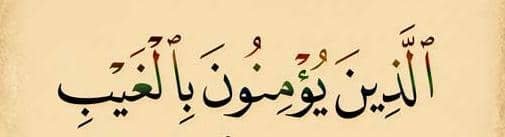 ٱلَّذِينَ يُؤْمِنُونَ بِٱلْغَيْبِ